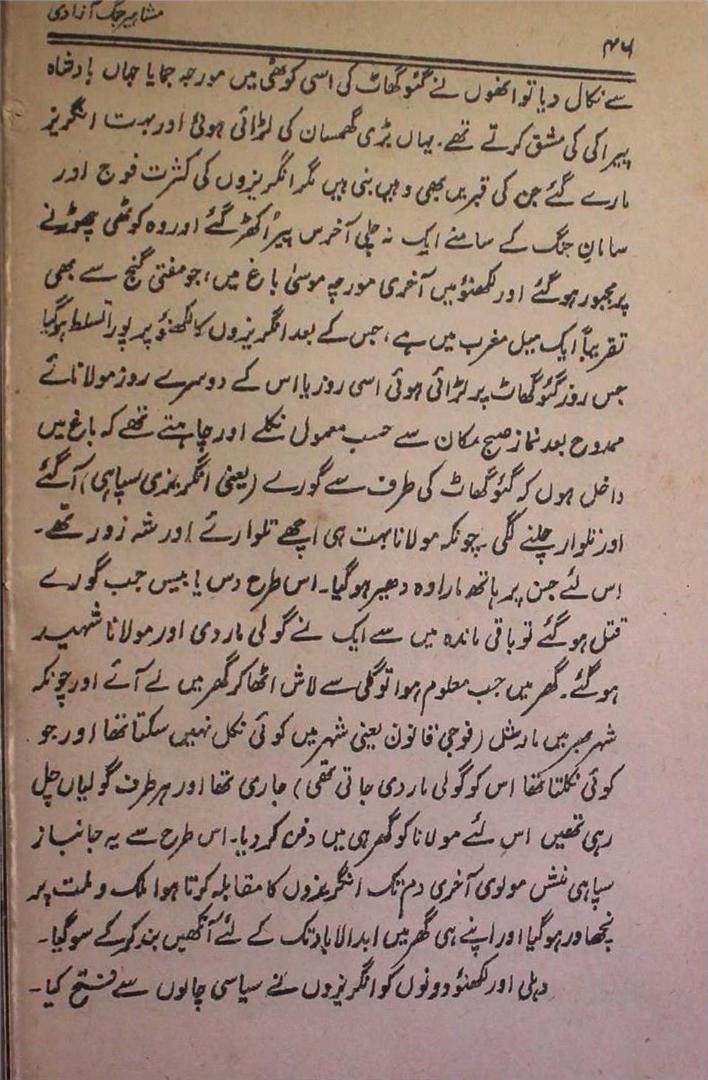 مشاہیر جنگ آزادی
۴۶
سے نکال دیا تو انھوں نے گئو گھاٹ کی اسی کوٹھی میں مورچہ جمایا جہاں بادشاہ
پیراکی کی مشق کرتے تھے۔ یہاں بڑی گھمسان کی لڑائی ہوئی اور بہت انگریز
مارے گئے جن کی قبریں بھی وہیں بنی ہیں مگر انگریزوں کی کثرت فوج اور
سامانِ جنگ کے سامنے ایک نہ چلی آخرس پیر اُکھڑ گئے اور وہ کوٹھی چھوڑنے
پر مجبور ہوگئے اور لکھنؤ میں آخری مورچہ موسیٰ باغ میں، جو مفتی گنج سے بھی
تقریباً ایک میل مغرب میں ہے، جس کے بعد انگریزوں کا لکھنؤ پر پورا تسلط ہوگیا
جس روز گئو گھاٹ پر لڑائی ہوئی اسی روز یا اس کے دوسرے روز مولانائے
ممدوح بعد نماز صبح مکان سے حسب معمول نکلے اور چاہتے تھے کہ باغ میں
داخل ہوں کہ گئو گھاٹ کی طرف سے گورے (یعنی انگریزی سپاہی) آگئے
اور تلوار چلنے لگی۔ چونکہ مولانا بہت ہی اچھے تلوارئے اور شہ زور تھے۔
اس لئے جن پر ہاتھ مارا وہ ڈھیر ہوگیا۔ اس طرح دس یا بیس جب گورے
قتل ہوگئے تو باقی ماندہ میں سے ایک نے گولی مار دی اور مولانا شہید
ہوگئے۔ گھر میں جب معلوم ہوا تو گلی سے لاش اٹھا کر گھر میں لے آئے اور چونکہ
شہر بھر میں مارشل (فوجی قانون یعنی شہر میں کوئی نکل نہیں سکتا تھا اور جو
کوئی نکلتا تھا اس کو گولی مار دی جاتی تھی) جاری تھا اور ہر طرف گولیاں چل
رہی تھیں اس لئے مولانا کو گھر ہی میں دفن کر دیا۔ اس طرح سے یہ جانباز
سپاہی منش مولوی آخری دم تک انگریزوں کا مقابلہ کرتا ہوا ملک و ملت پر
نچھاور ہوگیا اور اپنے ہی گھر میں ابدالاباد تک کے لئے آنکھیں بند کر کے سو گیا۔
دہلی اور لکھنؤ دونوں کو انگریزوں نے سیاسی چالوں سے فتح کیا۔